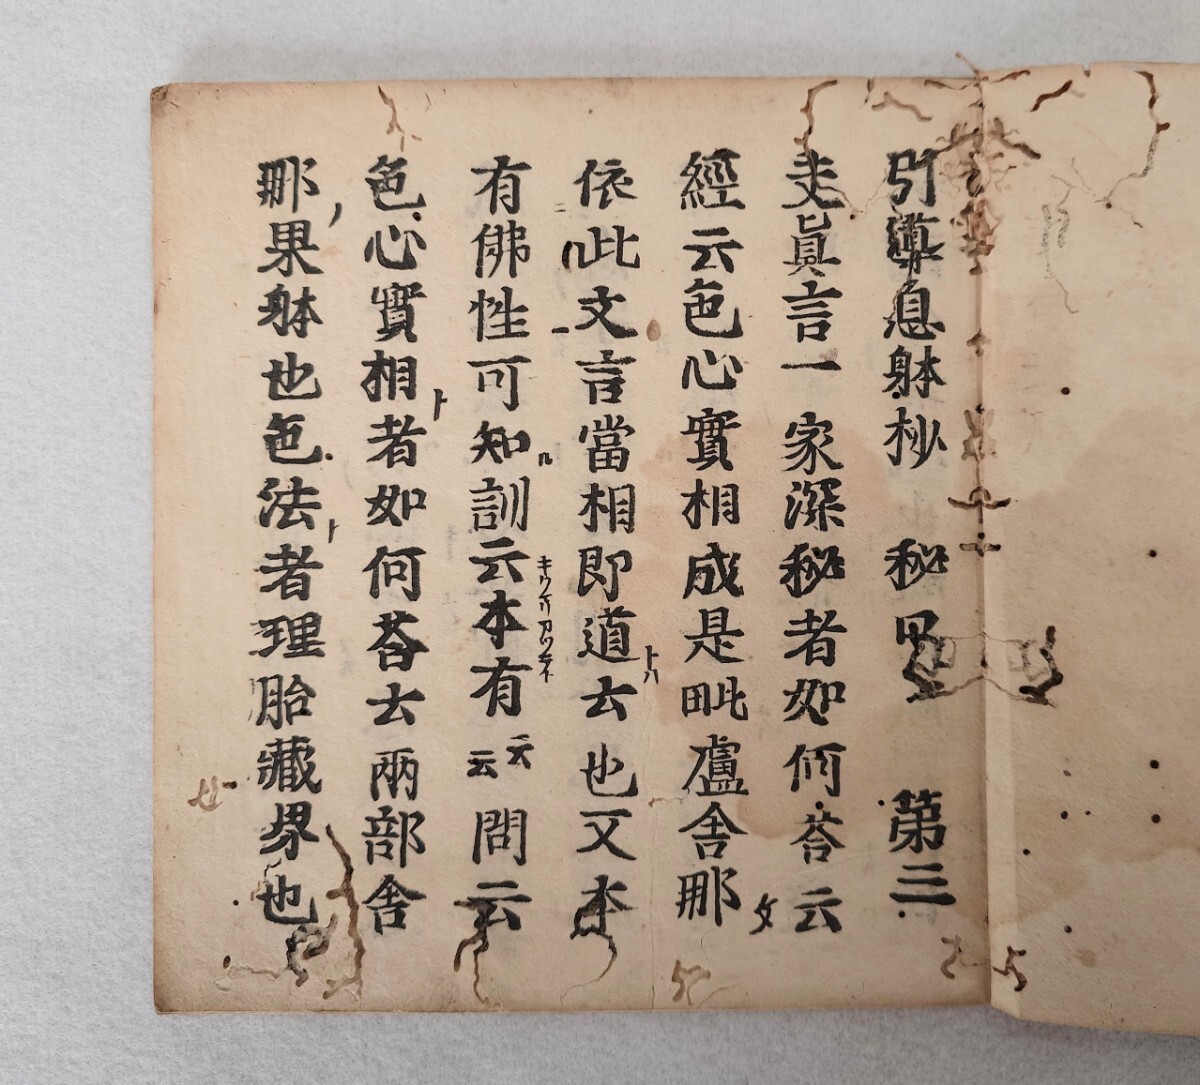 引導息躰抄　秘　第三
夫眞言一家深秘者如何荅云
經云色心實相成是毗盧舎那文
依此文言當相即道トハ云也又本
有佛性可知ル訓云本有云云問云
色心實相ト者如何荅云兩部舎
那果躰也色法ト者理胎藏界也